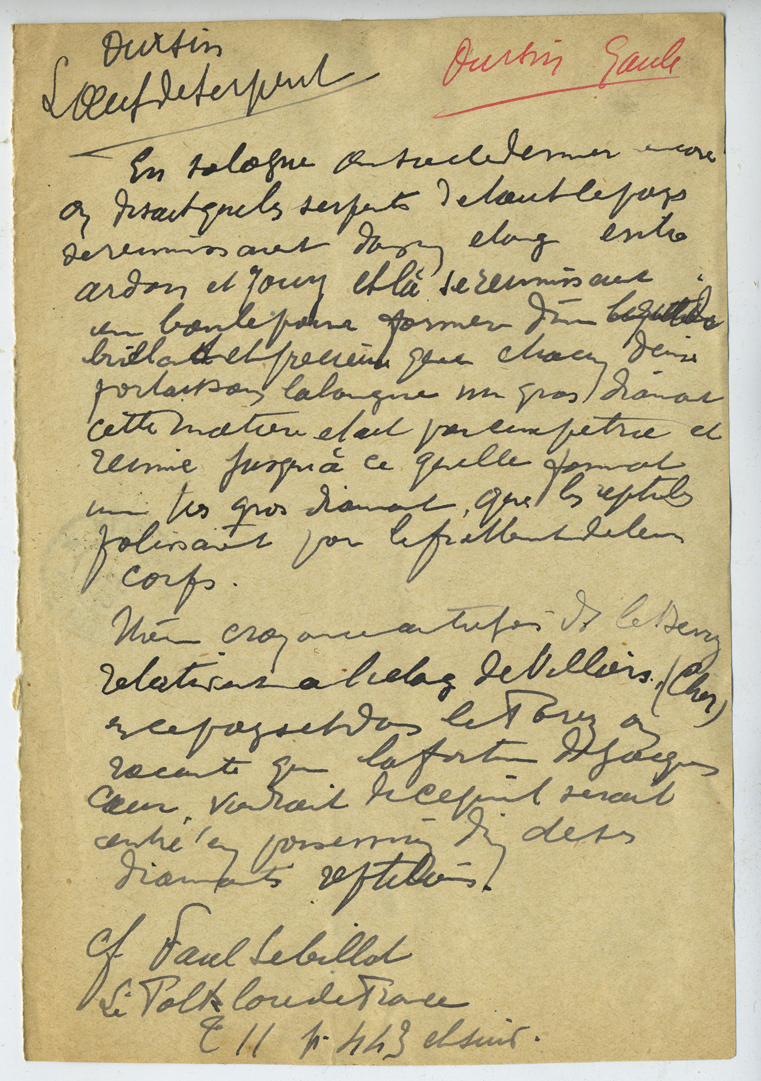 Oursin
L'Oeuf de serpent
Oursin Gaule
En Sologne au siecle dernier encore
on disait que les serpents de tout le pays
se reunissaient dans un etang entre
ardon et Jouy et là se reunissaient
en boule pour former d'une
brillante et precieuse que chacun d'eux
portait sous la langue un gros diamant
cette matière etait par eux petrie et
reunie jusqu'à ce quelle format
un tres gros diamant, que les reptiles
polissaient par le frottement de leur
corps.
Même croyance autrefois ds le Berry
relativement a l'etang de Villiers. (Cher)
en ce pays et dans le Forez on
raconte que la fortune de Jacques
Cœur viendrait de ce qu'il serait
entré en possession d'un de ses
diamants reptiliens.
cf Paul Sebillot
Le Folk lore de France
T II p. 443 et suiv.